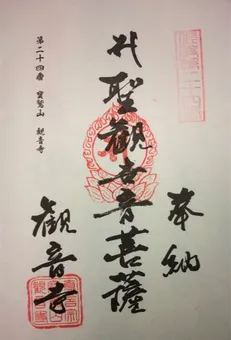 奉納
聖観世音菩薩
観音寺
第二十四番 寶鷲山 観音寺